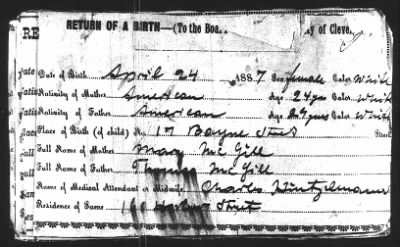 RETURN OF A BIRTH—(To the Boa.. y of Cleve.
Date of Birth, April 24 1887 Sex female Color White
Nativity of Mother American Age 24 yrs Color White
Nativity of Father American Age yrs Color White
Place of Birth (of child) No. 17 Street
Full Name of Mother Mary McGill
Full Name of Father Thomas McGill
Name of Medical Attendant or Midwife, Charles
Residence of Same Street